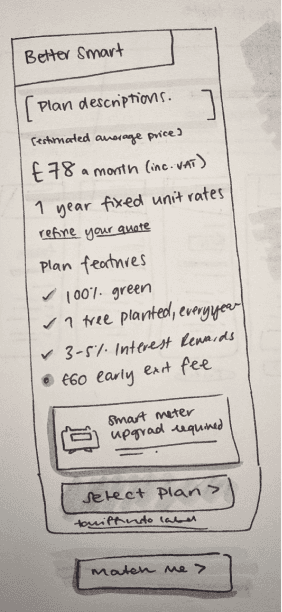 Better Smart
[Plan descriptions.]
(estimated average price)
£78 a month (inc. VAT)
1 year fixed unit rates
refine your quote
Plan features
✓ 100% green
✓ 1 tree planted, every year
✓ 3-5% Interest Rewards
£60 early exit fee
Smart meter
upgrad required
Select Plan >
tariff info label
Match me >